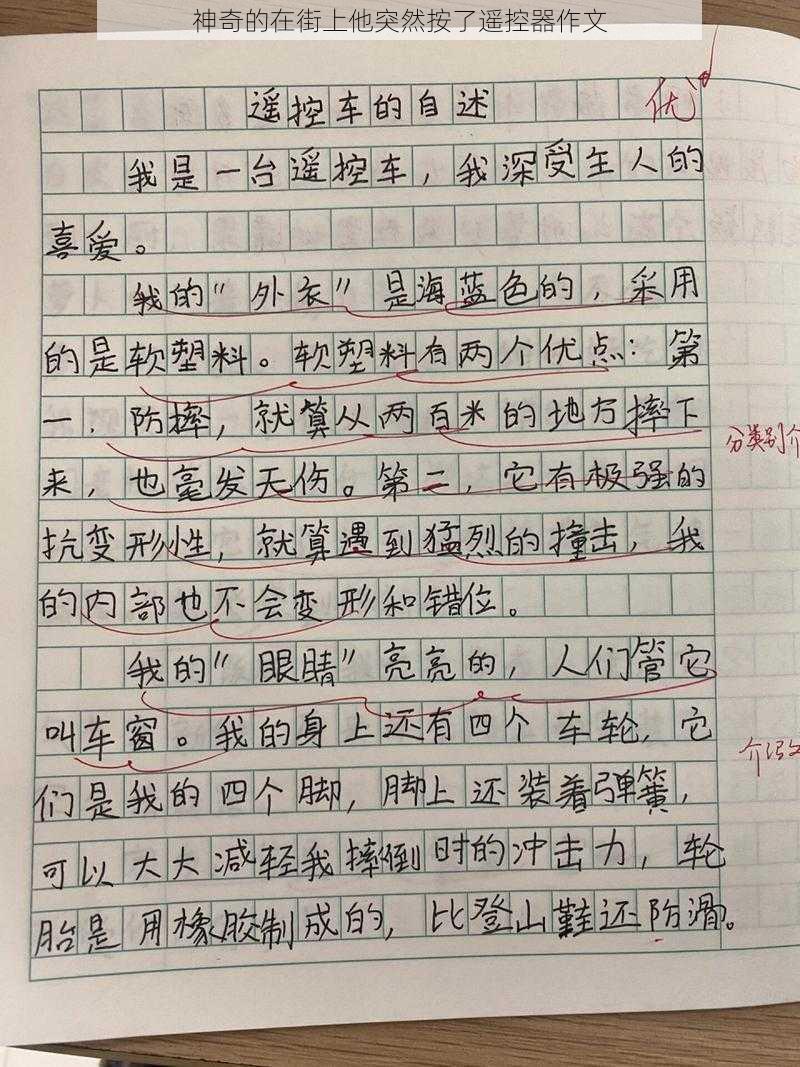 神奇的在街上他突然按了遥控器作文
遥控车的自述
优
我是一台遥控车，我深受主人的
喜爱。
我的“外衣”是海蓝色的，采用
的是软塑料。软塑料有两个优点：第
一．防摔，就算从两百米的地方摔下
来，也毫发无伤。第二，它有极强的
抗变形性，就算遇到猛烈的撞击，我
的内部也不会变形和错位。
我的“眼睛”亮亮的，人们管它
叫车窗。我的身上还有四个车轮，它
们是我的四个脚，脚上还装着弹簧，
可以大大减轻我摔倒时的冲击力，轮
胎是用橡胶制成的，比登山鞋还防滑。
分类别介